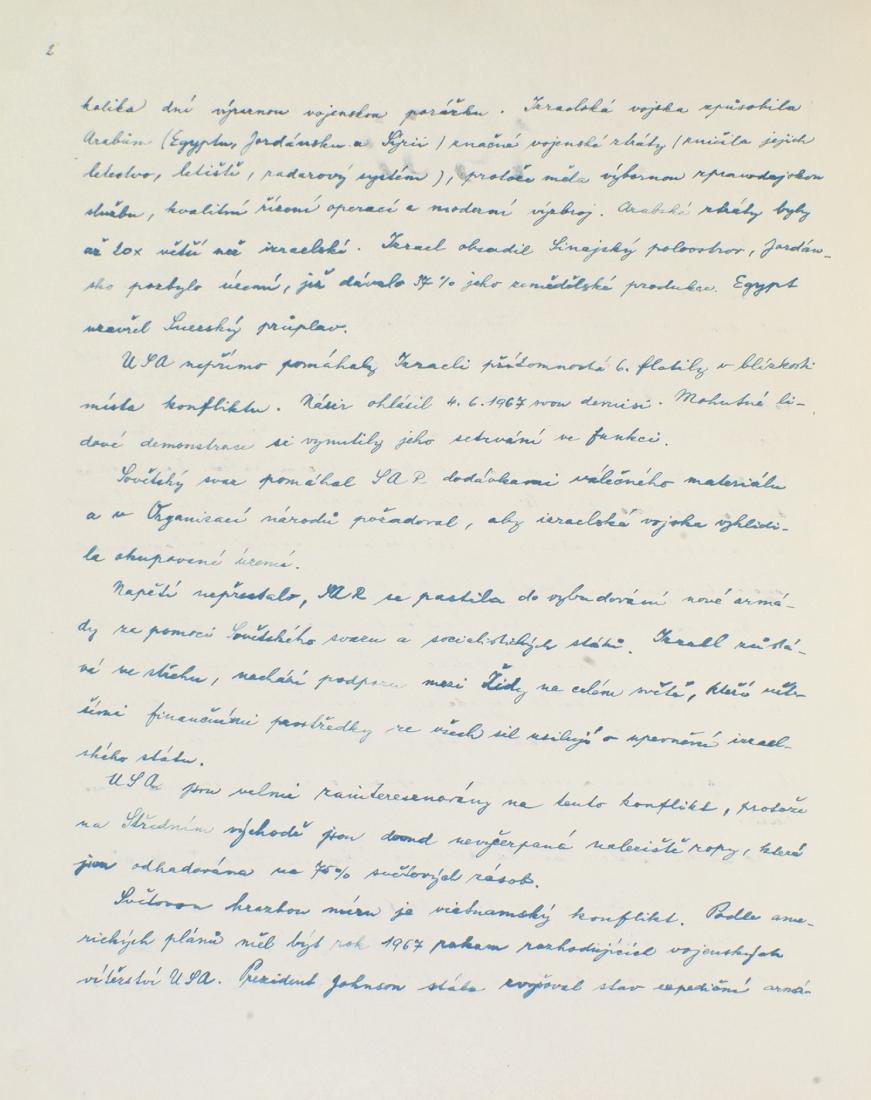 2
kolika dní výraznou vojenskou porážku. Izraelská vojska způsobila
Arabům (Egyptu, Jordánsku a Sýrii) značné vojenské ztráty (zničila jejich
letectvo, letiště, radarový systém), protože měla výbornou zpravodajskou
službu, kvalitní řízení operací a moderní výzbroj. Arabské ztráty byly
až 20x větší než izraelské. Izrael obsadil Sinajský poloostrov, Jordán-
sko pozbylo území, jež dávalo 37% jeho zemědělské produkce. Egypt
uzavřel Suezský průplav.
USA nepřímo pomáhaly Izraeli přítomností 6. flotily v blízkosti
místa konfliktu. Násir ohlásil 4.6.1967 svou demisi. Mohutné li-
dové demonstrace si vynutily jeho setrvání ve funkci.
Sovětský svaz pomáhal SAR dodávkami válečného materiálu
a v Organizaci národů požadoval, aby izraelská vojska vyklidi-
la okupovaná území.
Napětí nepřestalo, se pustila do vybudování nové armá-
dy za pomoci Sovětského svazu a socialistických států. Izrael zůstá-
vá ve střehu, nachází podporu mezi Židy na celém světě, kteří
finančními prostředky ze všech sil usilují o upevnění izrael-
ského státu.
USA jsou velmi zainteresenovány na tento konflikt, protože
na Středním východě jsou nevyčerpaná naleziště ropy, která
jsou odhadována na 75% světových zásob.
Světovou hrozbou míru je vietnamský konflikt. Podle ame-
rických plánů měl být rok 1967 rokem rozhodujících vojenských
vítězství USA. Prezident Johnson stále zvyšoval stav expediční armá-